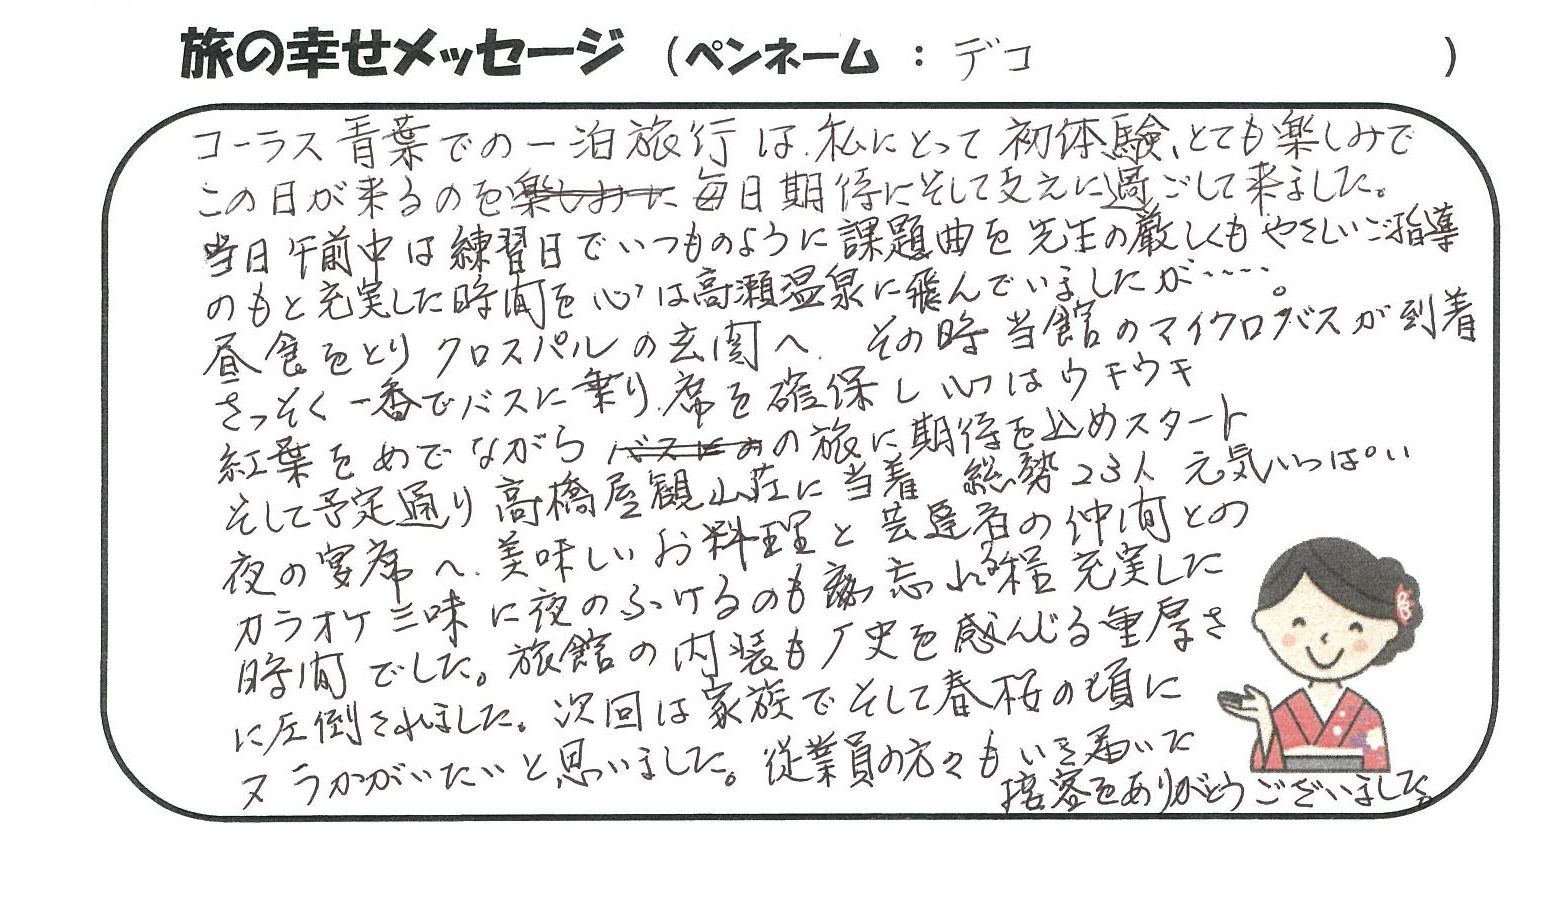 旅の幸せメッセージ (ペンネーム : デコ )
コーラス青葉での一泊旅行は、私にとって初体験、とても楽しみで
この日が来るのを楽しみに毎日期待にそして支えに過ごして来ました。
当日午前中は練習日でいつものように課題曲を先生の厳しくもやさしいご指導
のもと充実した時間を心は高瀬温泉に飛んでいましたが‥‥。
昼食をとりクロスパルの玄関へ、その時当館のマイクロバスが到着
さっそく一番でバスに乗り、席を確保し心はウキウキ
紅葉をめでながらの旅に期待を込めスタート
そして予定通り高橋屋観山荘に当着 総勢23人 元気いっぱい
夜の宴席へ、美味しいお料理と芸達者の仲間との
カラオケ三味に夜のふけるのも忘れる程充実した
時間でした。旅館の内装も厂史を感んじる重厚さ
に圧倒されました。次回は家族でそして春桜の頃に
ヌラかがいたいと思いました。従業員の方々もいき届いた
接客をありがとうございました。